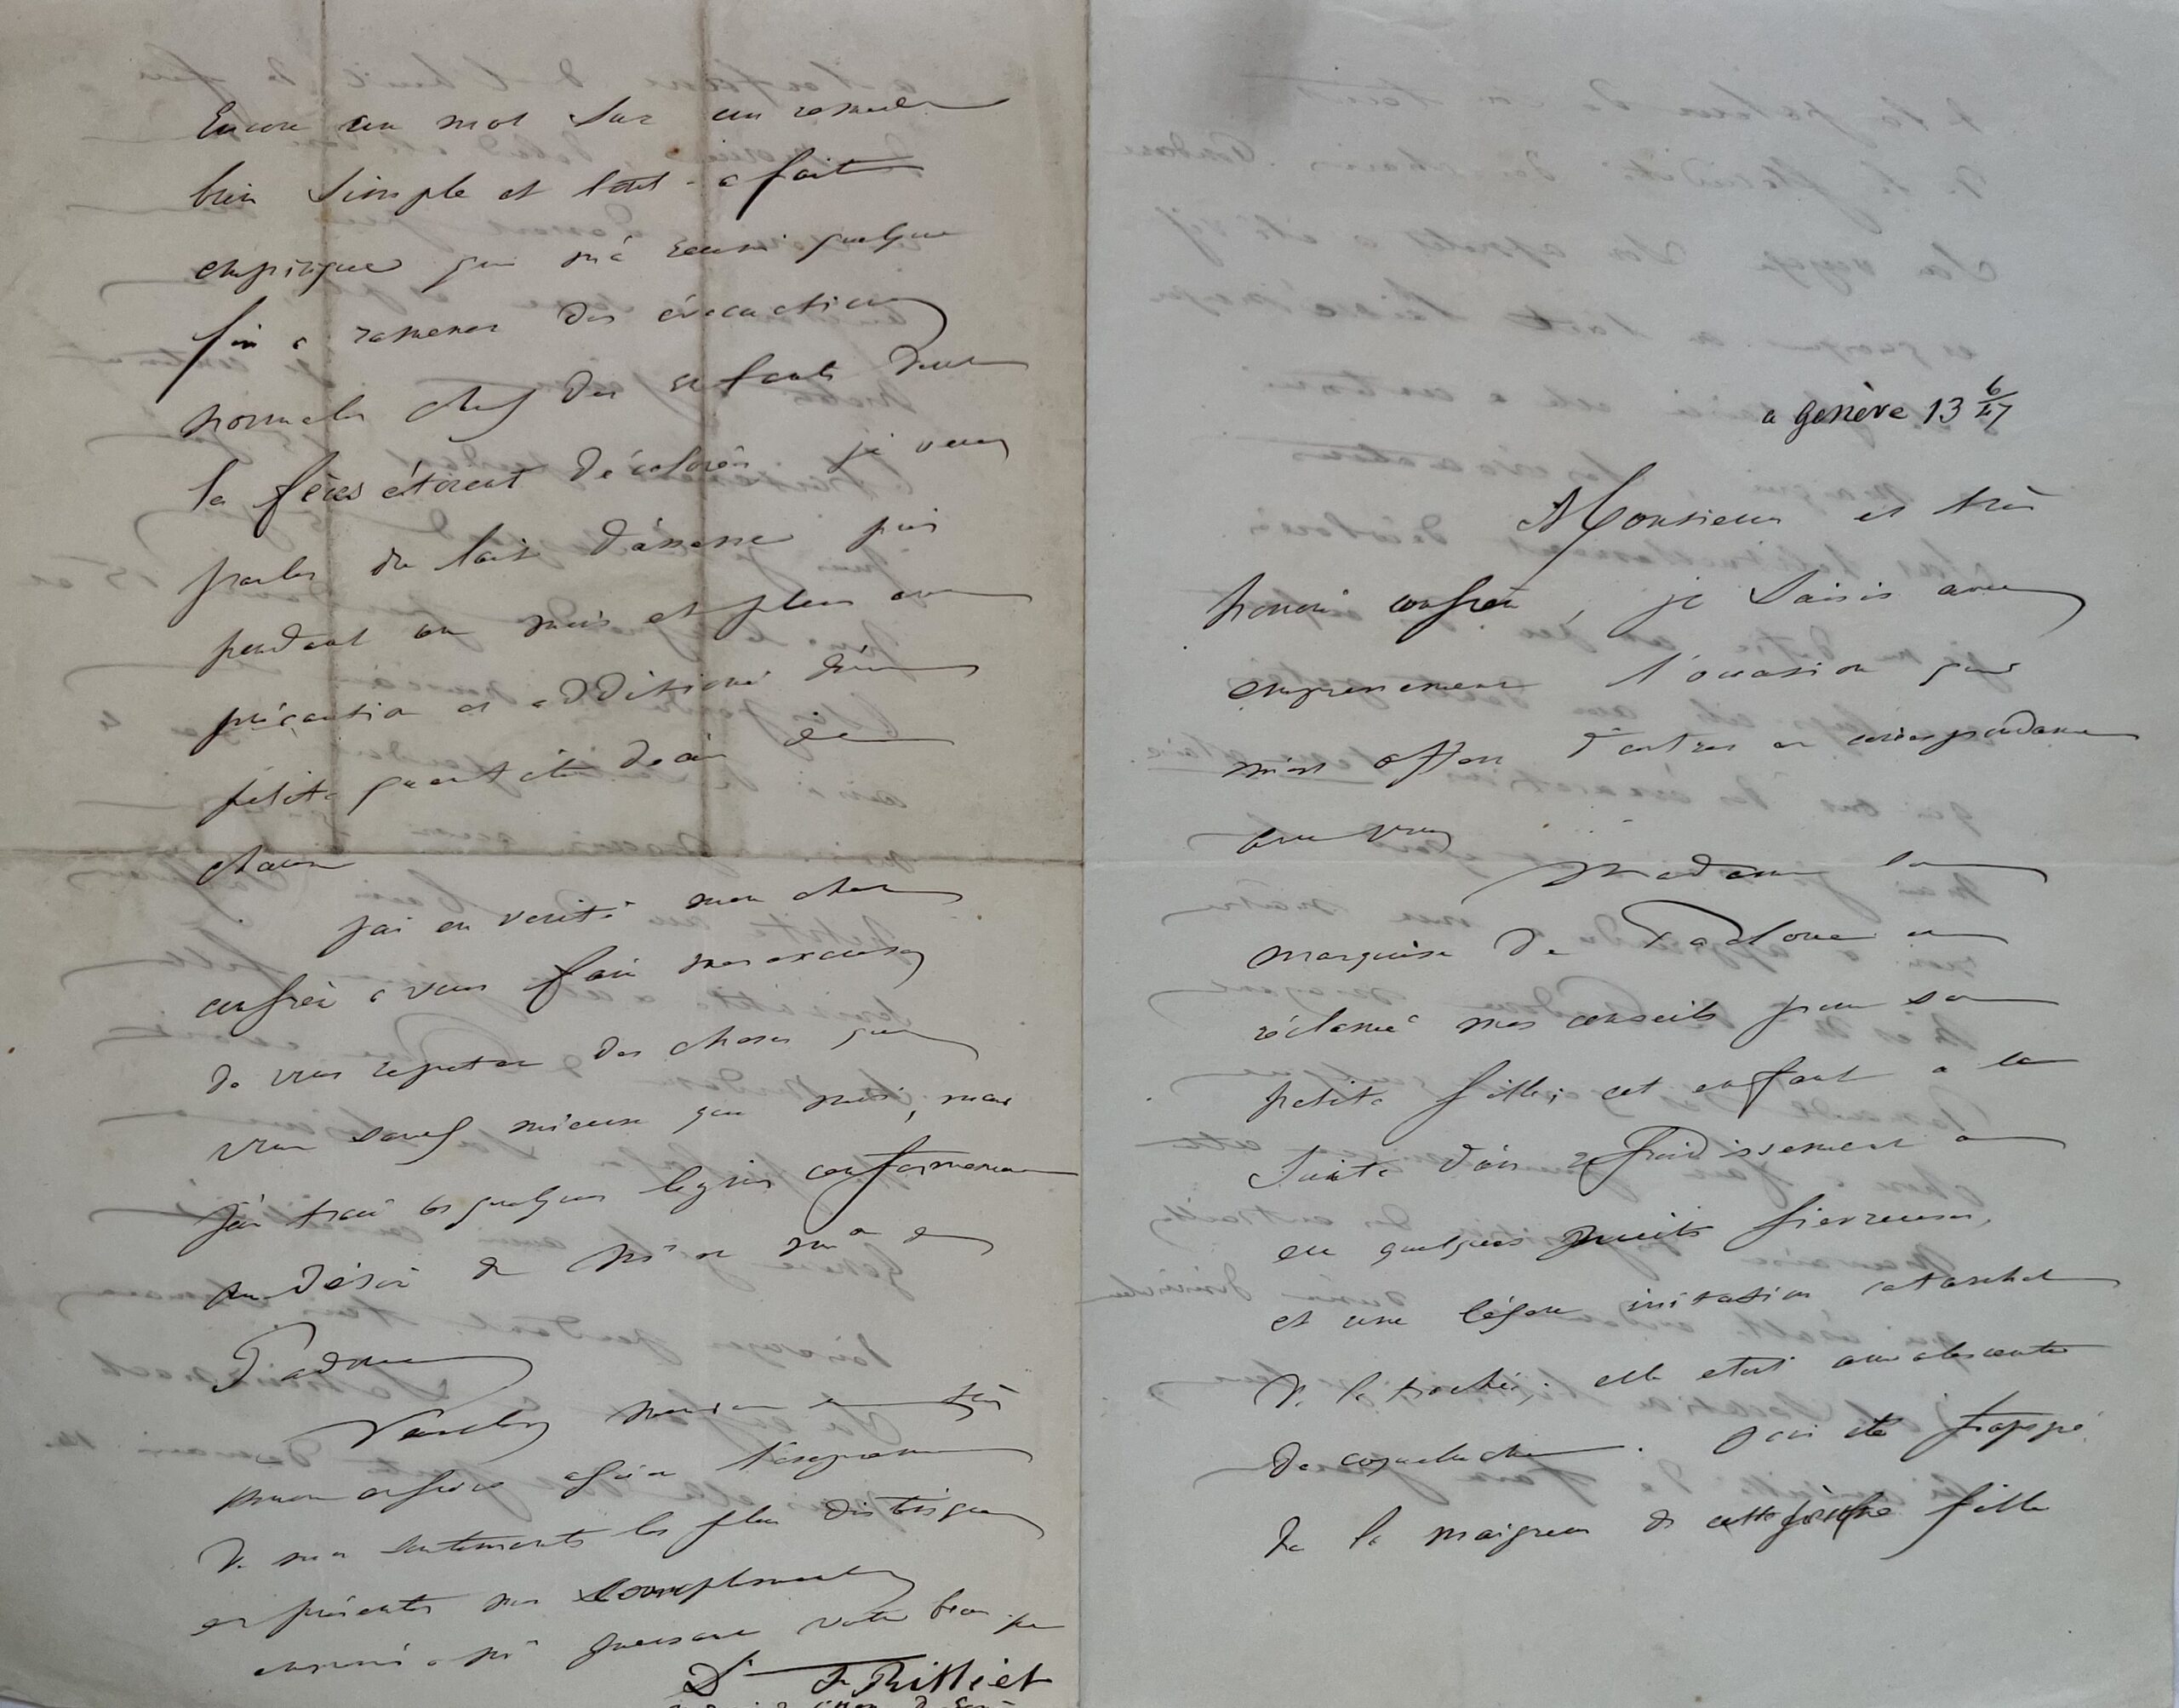 a Genève 13 6/47
Monsieur et très
honoré confrère, je saisis avec
empressement l'occasion qui
m'est offerte d'entrer en correspondance
avec vous
Madame la
marquise de Padoue a
réclamé mes conseils pour sa
petite fille; cet enfant a la
suite d'un refroidissement a
eu quelques nuits fievreuses,
et une légère irritation catarrhale
de la trachée; elle etait convalescente
de coqueluche. J'ai été frappé
de la maigreur de cette jeune fille
Encore un mot sur un remède
bien simple et tout-a fait
empirique qui m'a reussi quelque
fois a ramener des évacuations
normales chez des enfants dont
les fèces étoient décolorées je veux
parler du lait d'ânesse pris
pendant un mois et plus avec
précaution et additionné d'une
petite quantité d'eau de
chaux
J'ai en verité mon cher
confrère a vous faire mes excuses
de vous repeter des choses que
vous savez mieux que moi, mais
j'ai tracé ces quelques lignes conformement
au désir de Md la mse de
Padoue
Veuillez monsieur et très
honoré confrère agréer l'expression
de mes sentiments les plus distingués
et présenter mes compliments
à Mr votre beau-père
Dr F. Rilliet